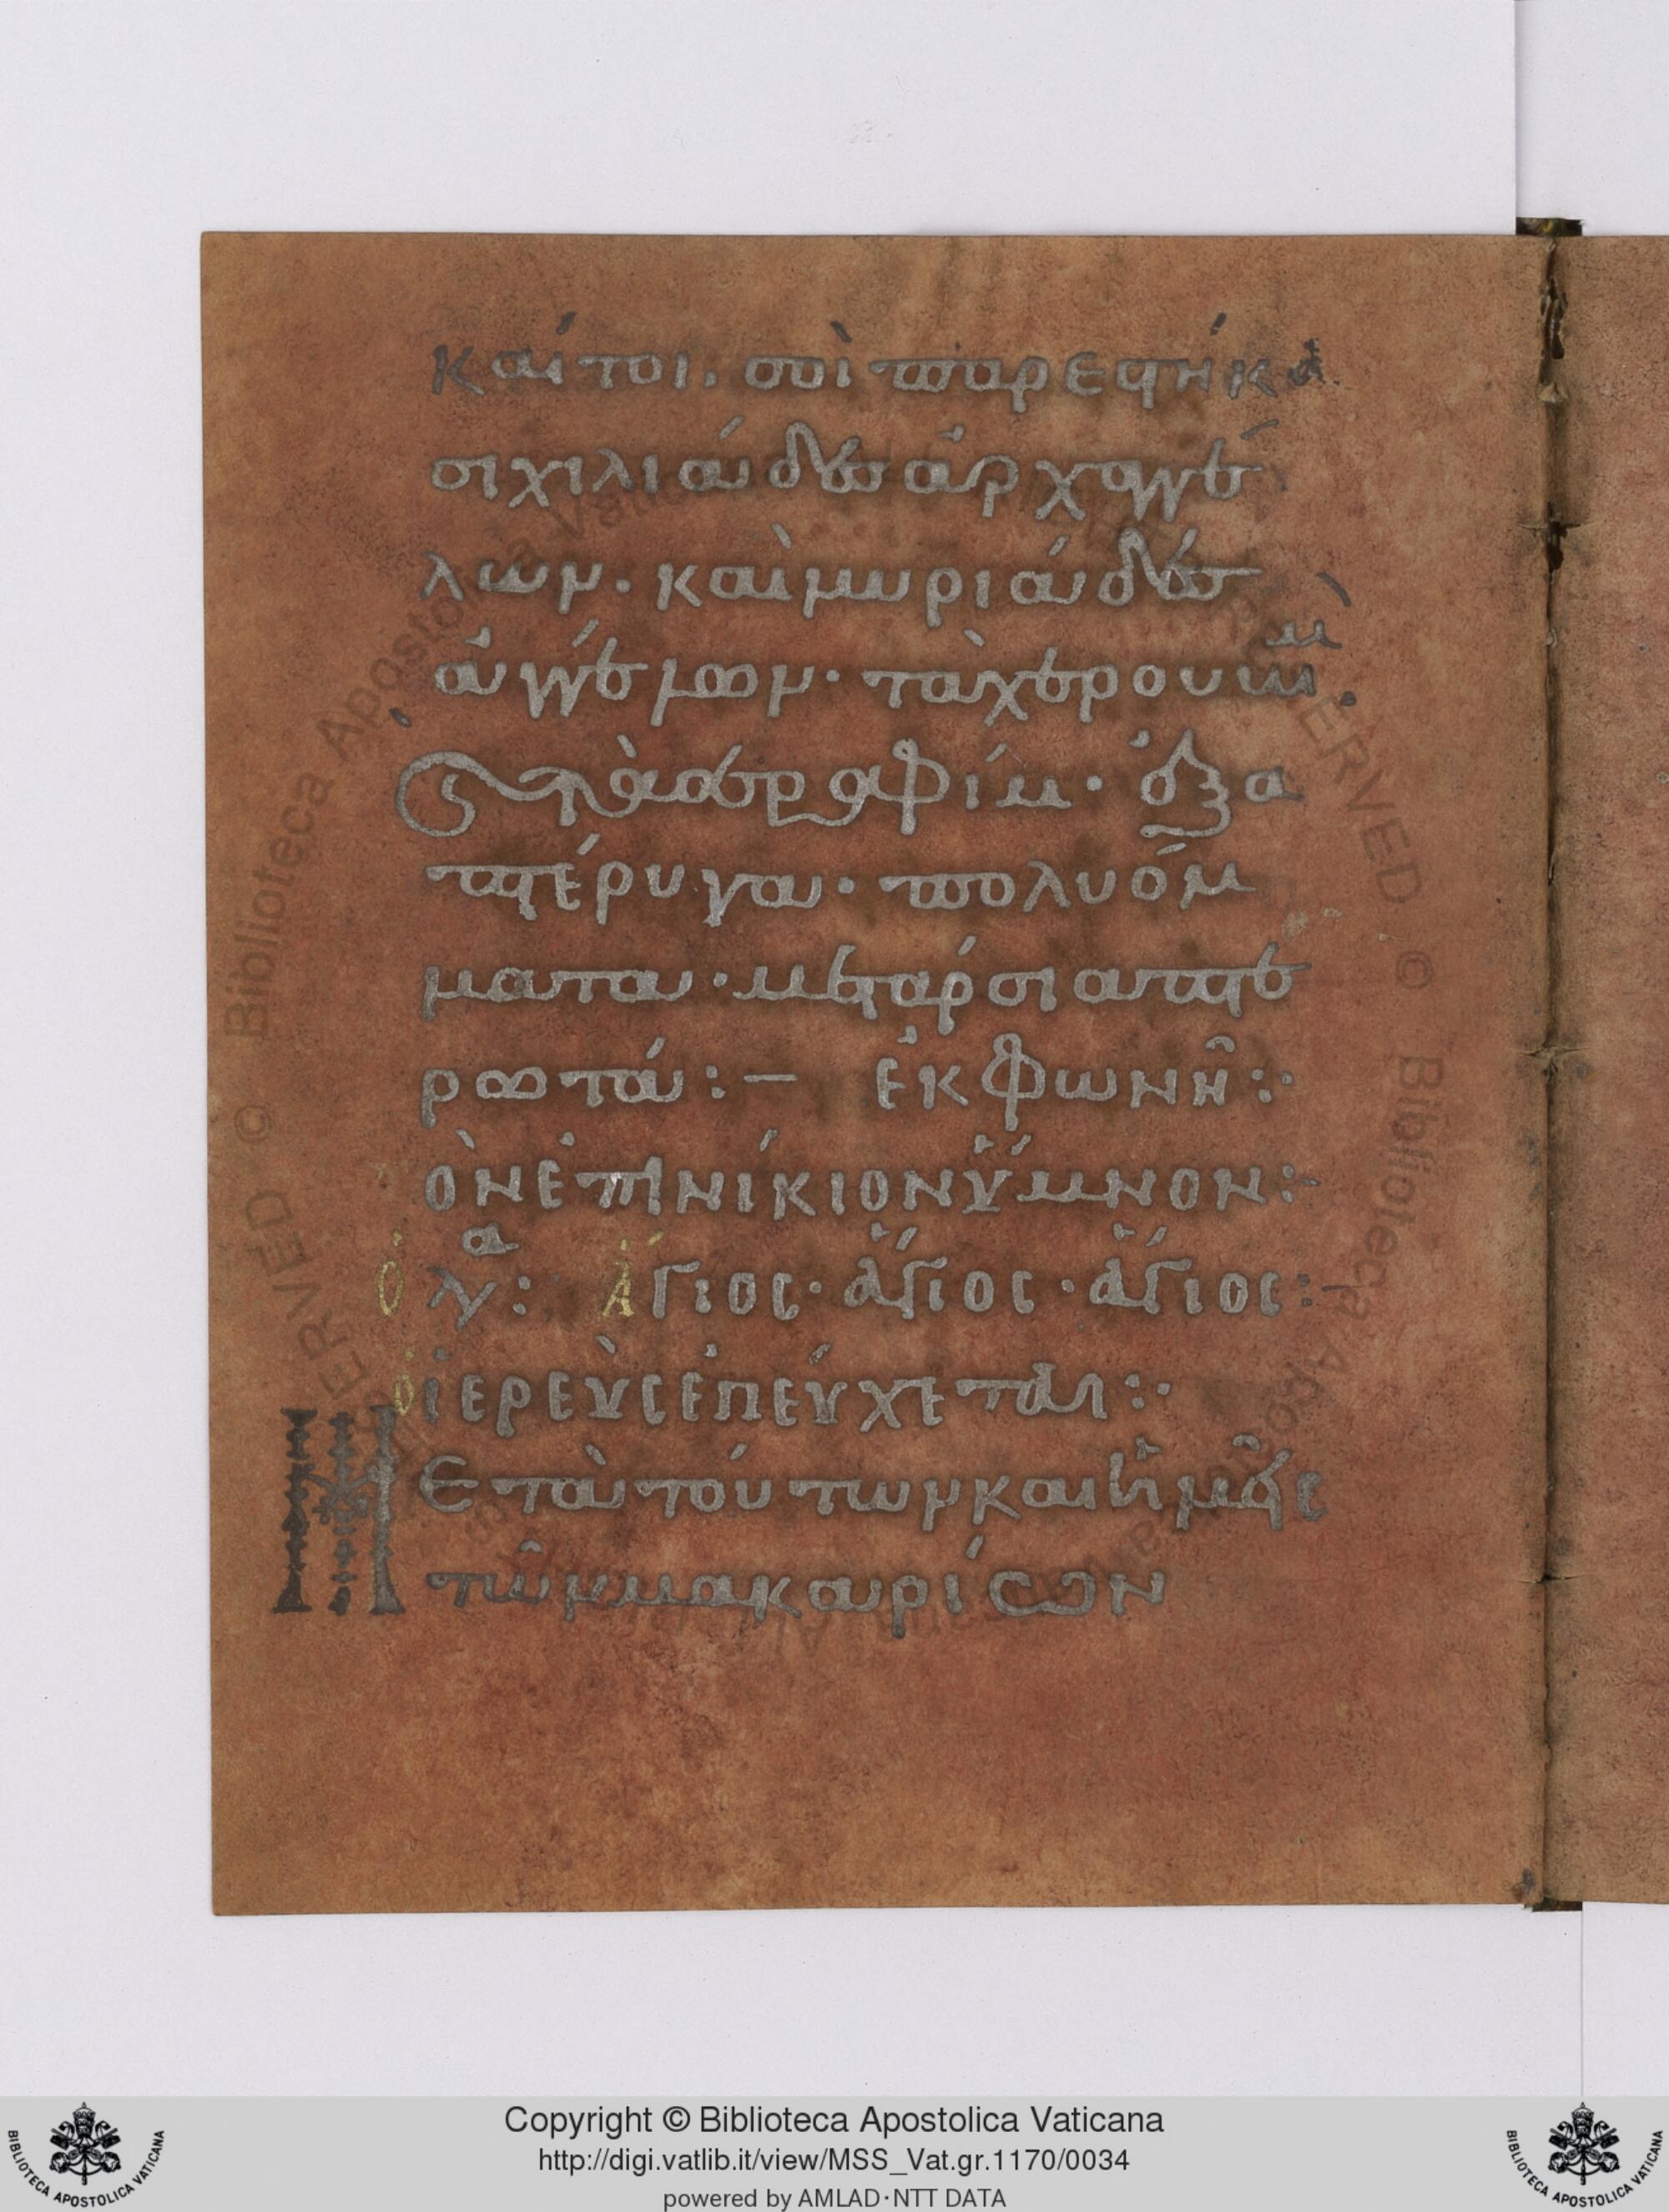 καίτοι. σοὶ παρεστήκα
σι χιλιάδεσ ἀρχαγγέ
λων. καὶ μυριάδεσ
ἀγγέλων· τὰ χερουβὶμ.
καὶ τὰ σεραφίμ· ἑξα
πτέρυγα· πολυόμ
ματα· μετάρσια πτε
ρωτά:— ἐκφωνῆ:·
ὸν ἐπινίκιον ὕμνον:·
ὁ λα: ἅγιος· ἅγιος· ἅγιος:
ὁ ἱερεὺς ἐπεύχεται:·
Μετὰ τούτων καὶ ἡμεῖς
τῶν μακαρίων
Copyright © Biblioteca Apostolica Vaticana
http://digi.vatlib.it/view/MSS_Vat.gr.1170/0034
powered by AMLAD·NTT DATA
BIBLIOTECA APOSTOLICA VATICANA
BIBLIOTECA APOSTOLICA VATICANA